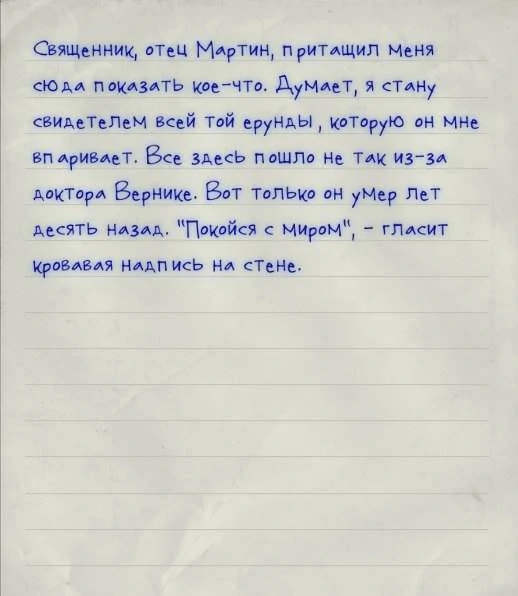 Священник, отец Мартин, притащил меня
сюда показать кое-что. Думает, я стану
свидетелем всей той ерунды, которую он мне
впаривает. Все здесь пошло не так из-за
доктора Вернике. Вот только он умер лет
десять назад. "Покойся с миром", - гласит
кровавая надпись на стене.